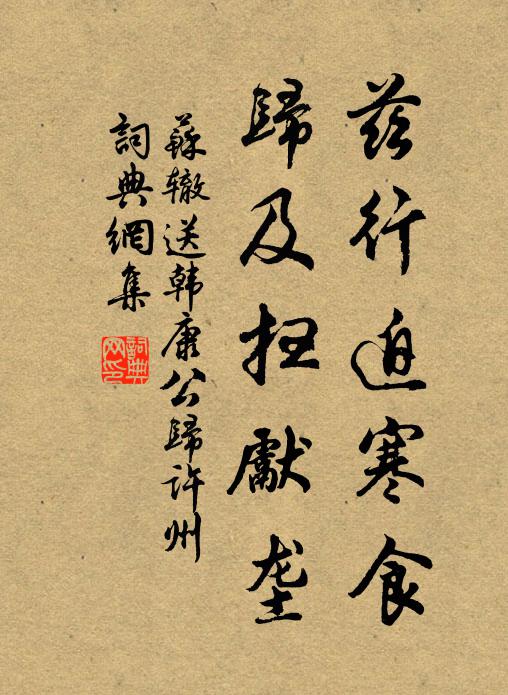 茲行迫寒食
歸及掃獻垄
蘇辙送韩康公歸许州
詞典網集
詞典網印